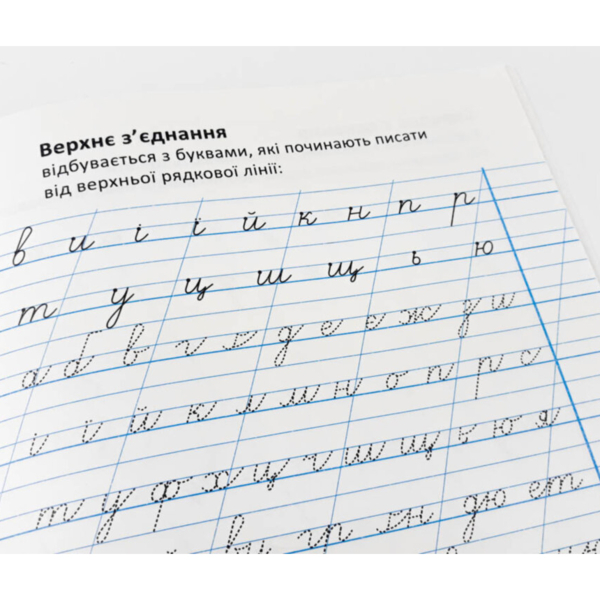 Верхнє з’єднання
відбувається з буквами, які починають писати
від верхньої рядкової лінії:
в и і ї й к н п р
т у ц ш щ ь ю
а б в г ґ д е є ж з и
і ї й к л м н о п р с
т у ф х ц ч ш щ ь ю я
ви гр хн дю ет